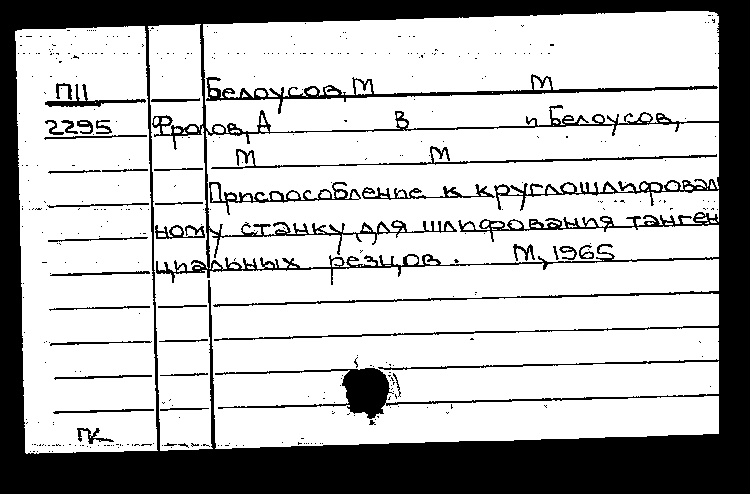 П11 Белоусов, М М
2295 Фролов, А В и Белоусов,
М М
Приспособление к круглошлифоваль
ному станку для шлифования танген
циальных резцов. М, 1965
ГК